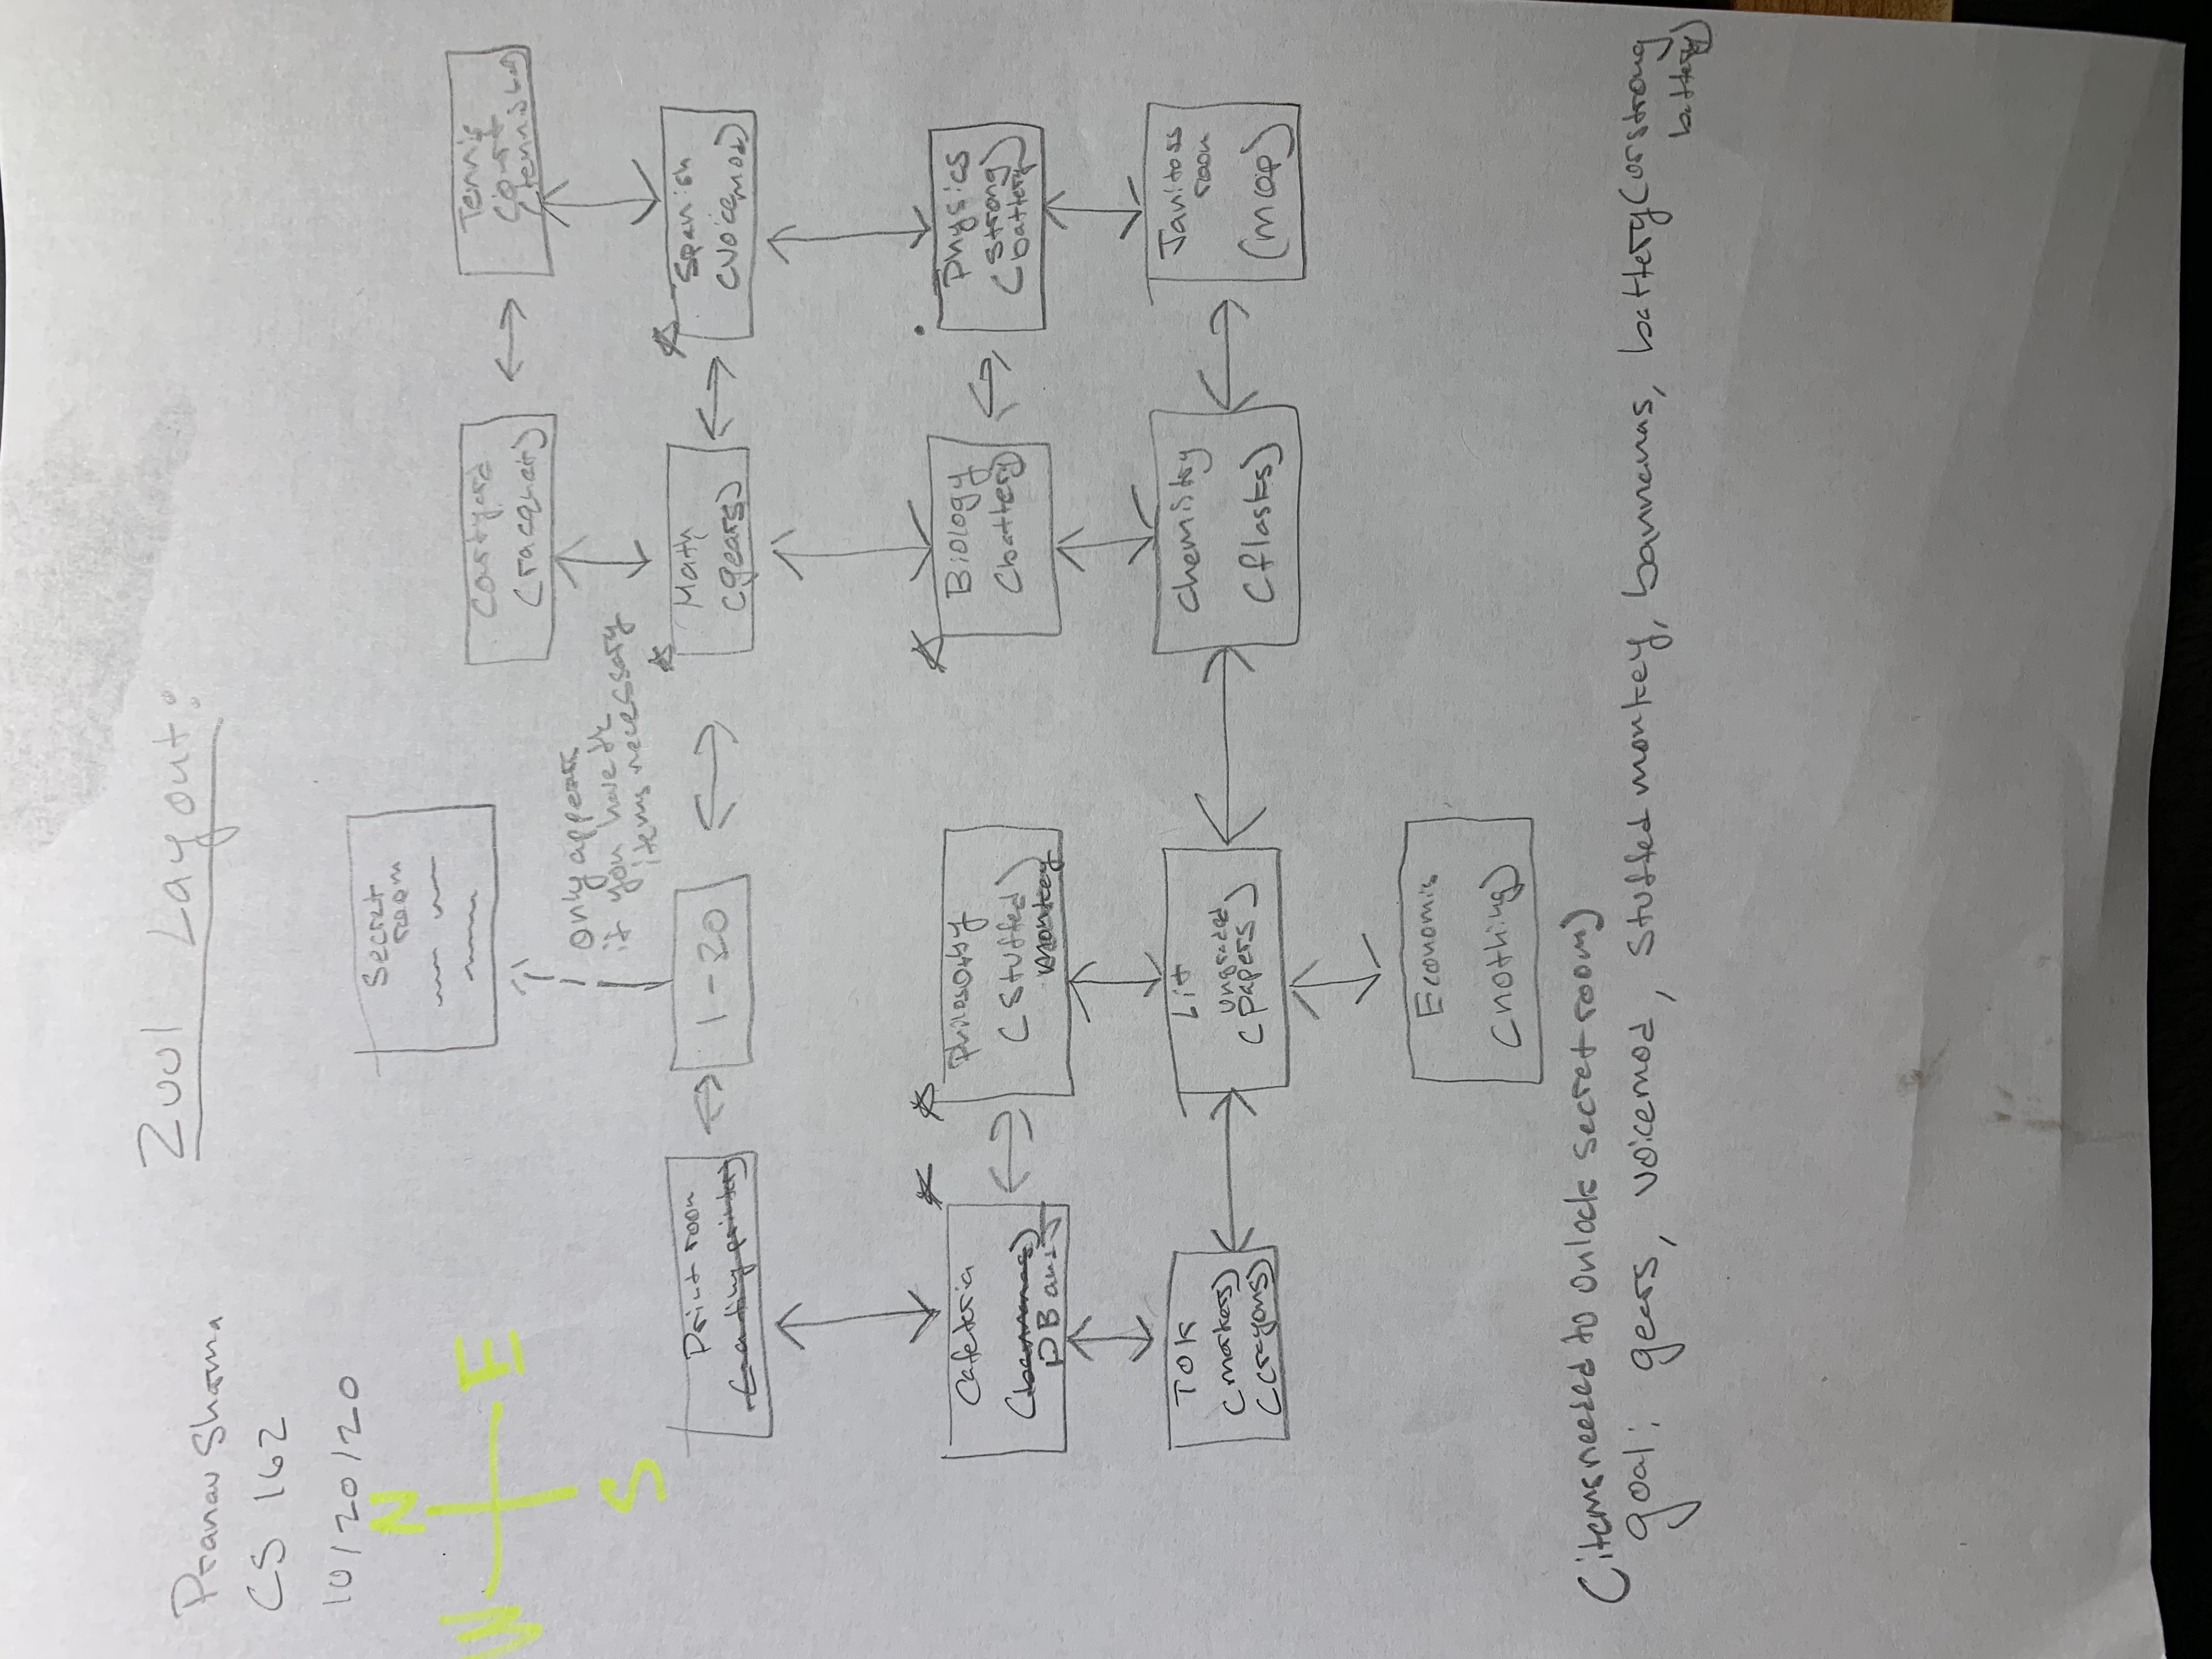 Zuul Layout:
Pranav Sharma
CS 162
10/20/20
N
W E
S
Secret
room
Courtyard
(racquet)
Tennis
Court
(tennis ball)
only appears
if you have the
items necessary
Print room
1-20
Math
(gears)
Spanish
(voicemod)
Cafeteria
(bannanas)
PB and J
Philosophy
(Stuffed
monkey
Biology
(battery)
Physics
(strong
battery)
TOK
(markers)
(crayons)
Lit
ungraded
(papers)
Chemistry
(flasks)
Janitors
room
(mop)
Economis
(nothing)
(items needed to unlock secret room)
goal: gears, voicemod, stuffed monkey, bannanas, battery (or strong
battery)